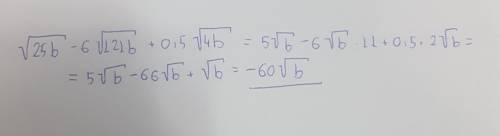 √25b - 6√121b + 0,5√4b = 5√b - 6√b · 11 + 0,5 · 2√b =
= 5√b - 66√b + √b = -60√b